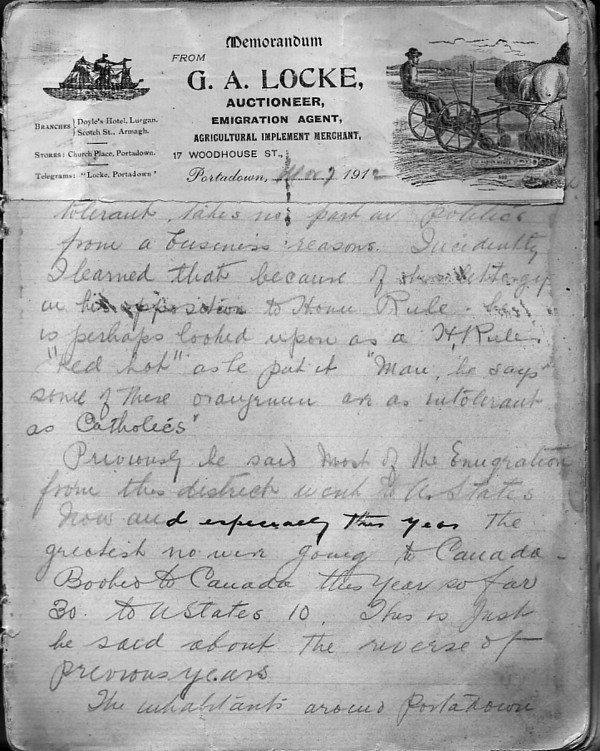 Memorandum
FROM
G. A. LOCKE,
AUCTIONEER,
EMIGRATION AGENT,
AGRICULTURAL IMPLEMENT MERCHANT,
17 WOODHOUSE ST.,
Portadown, Nov 7 1912
BRANCHES } Doyle's Hotel, Lurgan.
Scotch St., Armagh.
STORES: Church Place, Portadown.
Telegrams: "Locke, Portadown"
tolerant, takes no part in Politics
from a business reasons. Incidently
I learned that because of lethargy
in his opposition to Home Rule he
is perhaps looked upon as a H. Ruler
"Red hot" as he put it "Man, he says"
some of these orangemen are as intolerant
as Catholics"
Previously he said most of the Emigration
from this district went to U. States
Now and especially this year the
greatest no were going to Canada -
Booked to Canada this Year so far
30. to U States 10. This is Just
he said about the reverse of
previous years
The inhabitants around Portadown